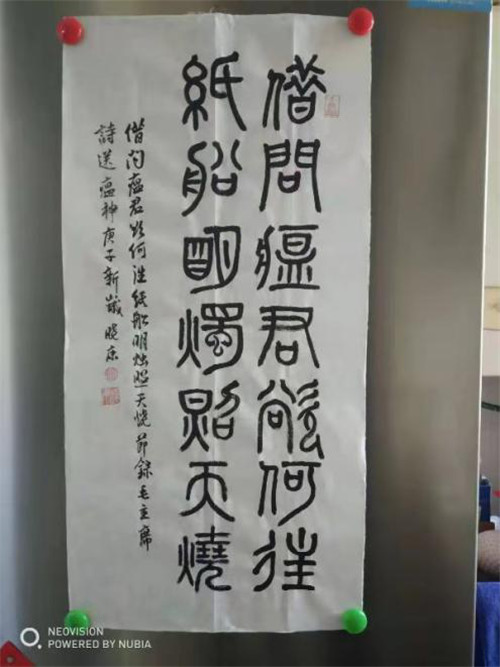 借問瘟君欲何往
紙船明燭照天燒
借问瘟君欲何往紙船明烛照天烧节録毛主席
詩送瘟神庚子新歲晓
NEOVISION
POWERED BY NUBIA